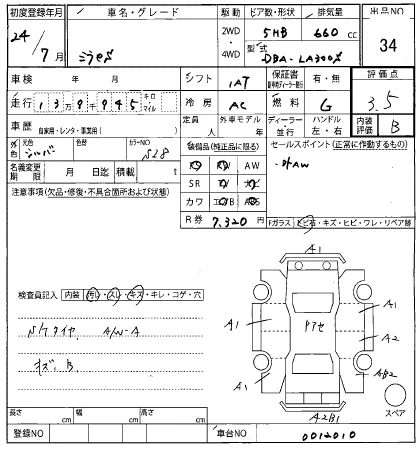 初度登録年月 車名・グレード 駆動 ドア数・形状 排気量 出品NO
24/7月 ミラe:S 2WD・4WD 5HB 660cc 34
型式 DBA-LA300S
車検 年 月 シフト IAT 保証書 有・無 評価点
走行 139945 キロ・マイル 冷房 AC 燃料 G 3.5
車歴 自家用・レンタ・事業用( ) 定員 人 外車モデル 年 ディーラー・並行 ハンドル 左・右 内装評価 B
外色 元色 シルバー 色替 カラーNO S28
装備品(純正品に限る) セールスポイント(正常に作動するもの)
名義変更期限 月 日迄 積載 t
PS PW AW
・外AW
SR ナビ TV
カワ エアB ABS
注意事項(欠品・修復・不具合箇所および状態)
R券 7,320円
Fガラス 飛び石・キズ・ヒビ・ワレ・リペア跡
検査員記入 内装 汚レ・スレ・キズ・キレ・コゲ・穴
A/W-A
キズ、B
A1
A1
A1
A2
A1
AB2
A2B1
スペア
長さ cm 幅 cm 高さ cm
登録NO 車台NO 0012010